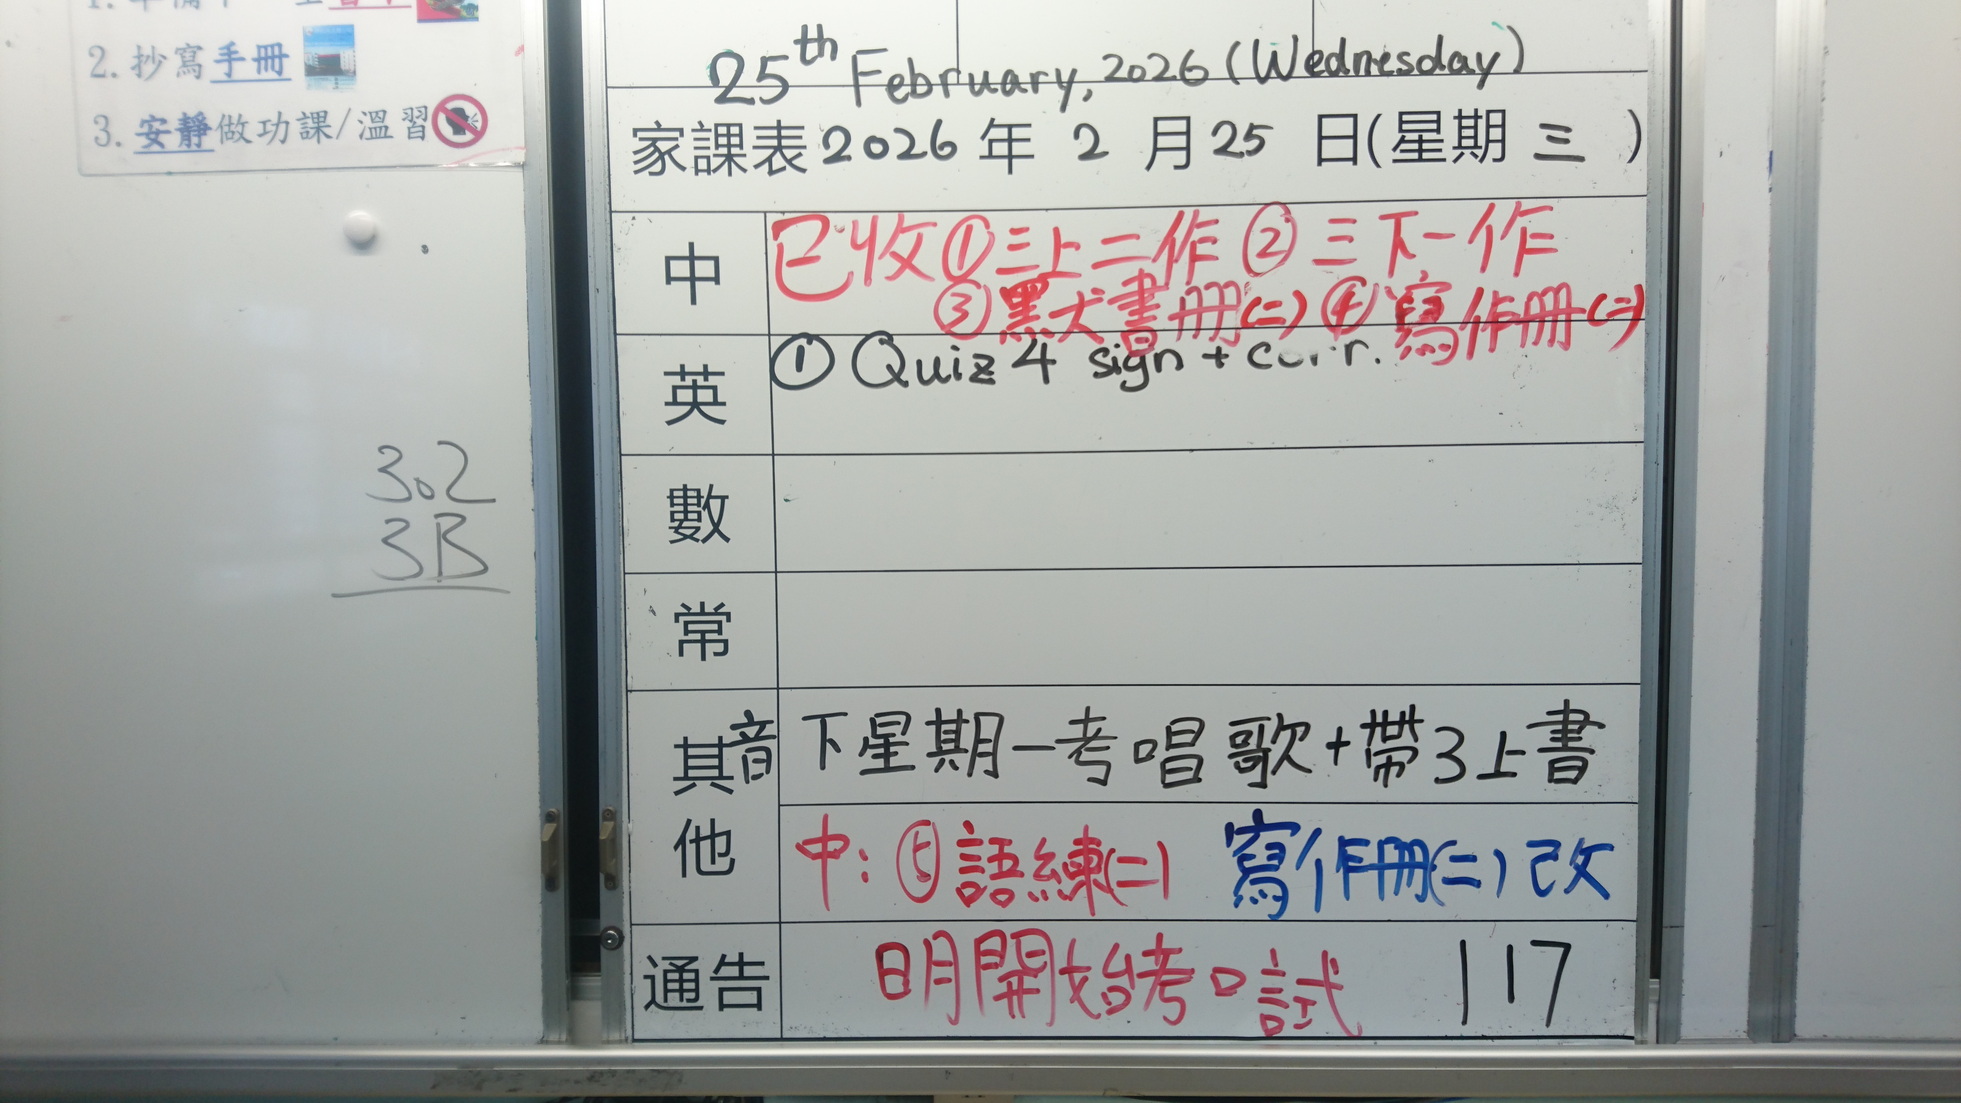 2. 抄寫手冊
3. 安靜做功課/溫習
3.2
3B
25th February, 2026 (Wednesday)
家課表2026年 2 月25 日(星期 三 )
中 已收①三上二作 ②三下一作
③黑犬書冊(二) ④寫作冊(二)
英 ① Quiz 4 sign + corr.
數
常
其他
音 下星期一考唱歌+帶3上書
中: ⑤語練(二) 寫作冊(二)改
通告 明開始考口試 117